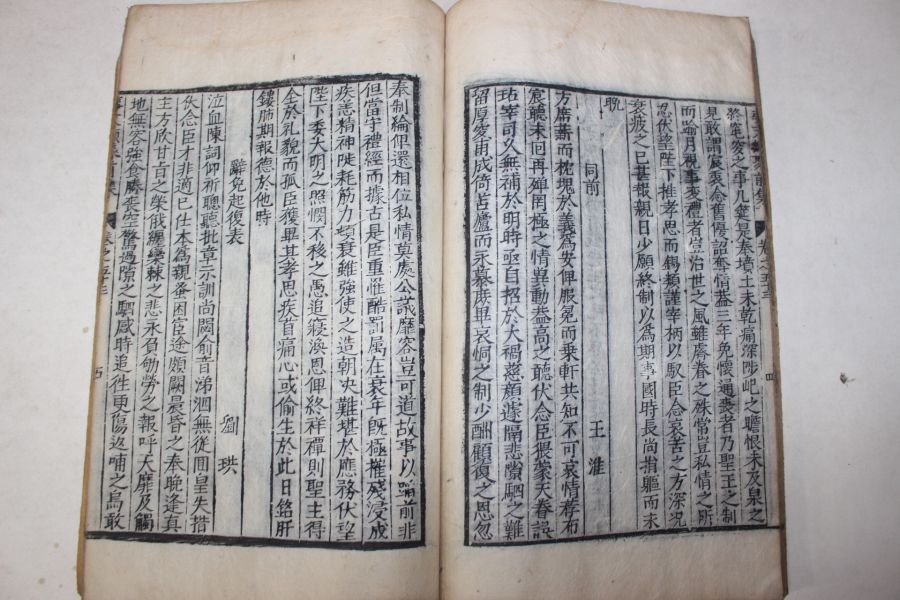 終窀穸之事几筵是奉墳土未乾痛深陟屺之瞻恨未及泉之
見敢謂宸衷念舊優詔奪情蓋三年免懷通喪者乃聖王之制
而踰月視事變禮者豈治世之風雖膺眷之殊當豈私情之
忍伏望陛下推孝思而錫類謹宰柄以馭臣念哀苦之方深况
衰疲之已甚報親日少願終制以爲期事國時長尚捐軀而未
晚
同前
王淮
方席薪而枕塊於義爲安俾服冕而乘軒共知不可哀情荐布
宸聽未回再殫罔極之情異動盖高之聽伏念臣猥蒙天眷誤
玷宰司久無補於明時亟自招於大禍慈顏遽隔悲隙駟之難
留厚穸甫成倚苫廬而永慕庶畢哀恫之制少酬顧復之恩忽
奉制綸俾還相位私情莫處公議靡容豈可道故事以踰前非
但當守禮經而據古是臣重罹酷罰属在衰年旣極摧殘浸成
疾恙精神陡耗筋力頓衰雖強使之造朝决難堪於應務伏望
陛下委大明之照憫不移之愚追寢渙恩俾終祥禫則聖主得
全於礼貌而孤臣獲畢其孝思疾首痛心或偷生於此日銘肝
鏤肺期報德於他時
辭免起復表
劉珙
泣血陳詞仰祈聰聽批章示訓尚閟兪音涕泗無從囬皇失措
伏念臣才非適已仕本爲親蚤困臣途頗闕晨昏之奉晩逢真
主方欣甘旨之榮俄纏欒棘之悲永負劬勞之報呼天靡及觸
地無容強食勝喪空驚過隙之駟感時追徃更傷返哺之烏敢